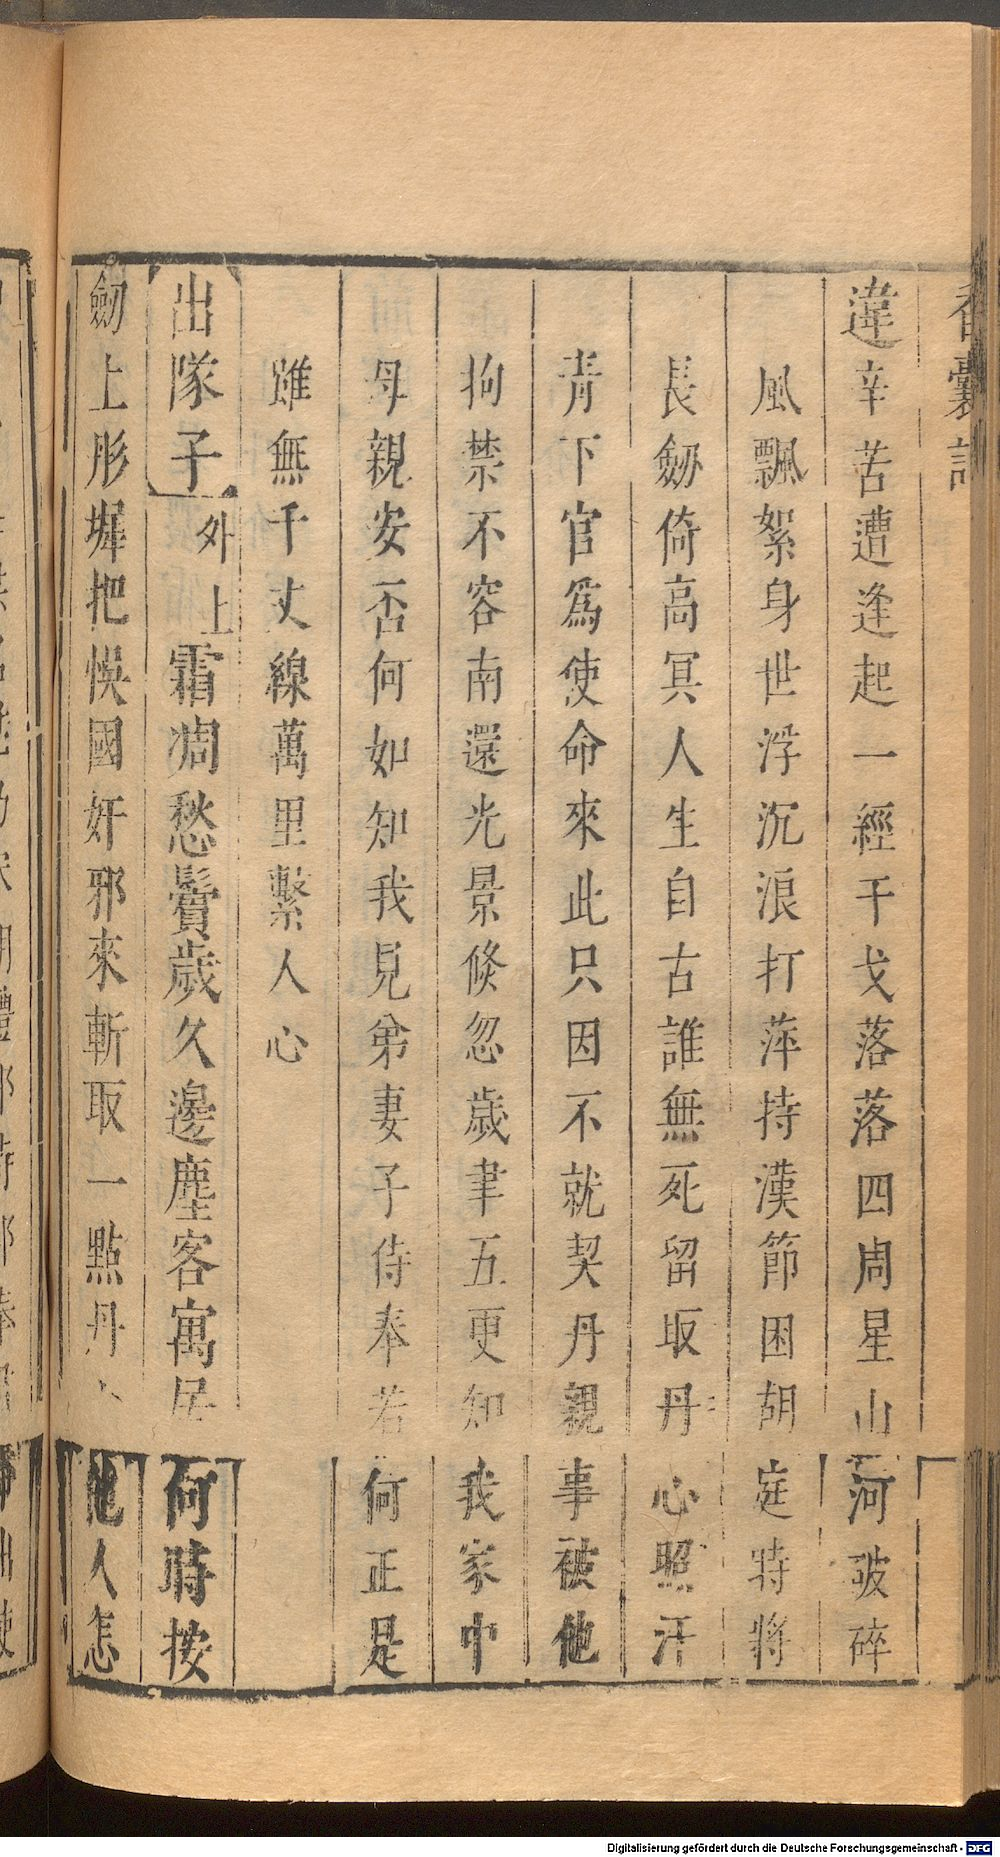 香囊記
違辛苦遭逢起一經干戈落落四周星山河破碎
風飄絮身世浮沉浪打萍持漢節困胡庭特將
長劒倚高冥人生自古誰無死留取丹心照汗
青下官為使命來此只因不就契丹親事被他
拘禁不容南還光景倐忽歲聿五更知我家中
母親安否何如知我兄弟妻子侍奉若何正是
雖無千丈線萬里繫人心
出隊子外上霜凋愁鬢歲久邊塵客寓居何時按
劒上彤墀把悞國奸邪來斬取一點丹心他人怎
Digitalisierung gefördert durch die Deutsche Forschungsgemeinschaft - DFG